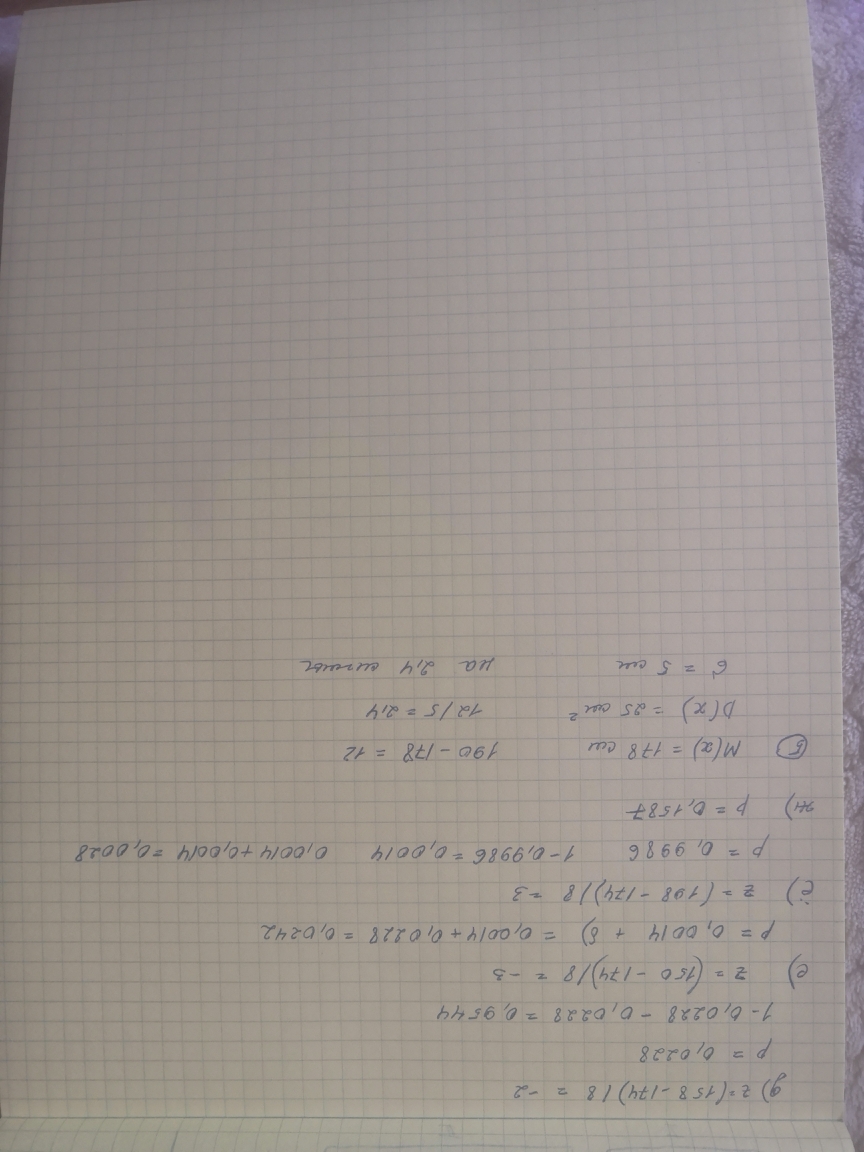 д) z=(158-174)/8 = -2
p = 0,0228
1-0,0228 - 0,0228 = 0,9544
е) z = (150 -174)/8 = -3
p = 0,0014 + б) = 0,0014+0,0228 = 0,0242
ё) z = (198-174)/8 = 3
p = 0,9986 1-0,9986 = 0,0014 0,0014+0,0014 = 0,0028
ж) p = 0,1587
5 M(x) = 178 см 190-178 = 12
D(x) = 25 см² 12/5 = 2,4
σ = 5 см на 2,4 сигмы